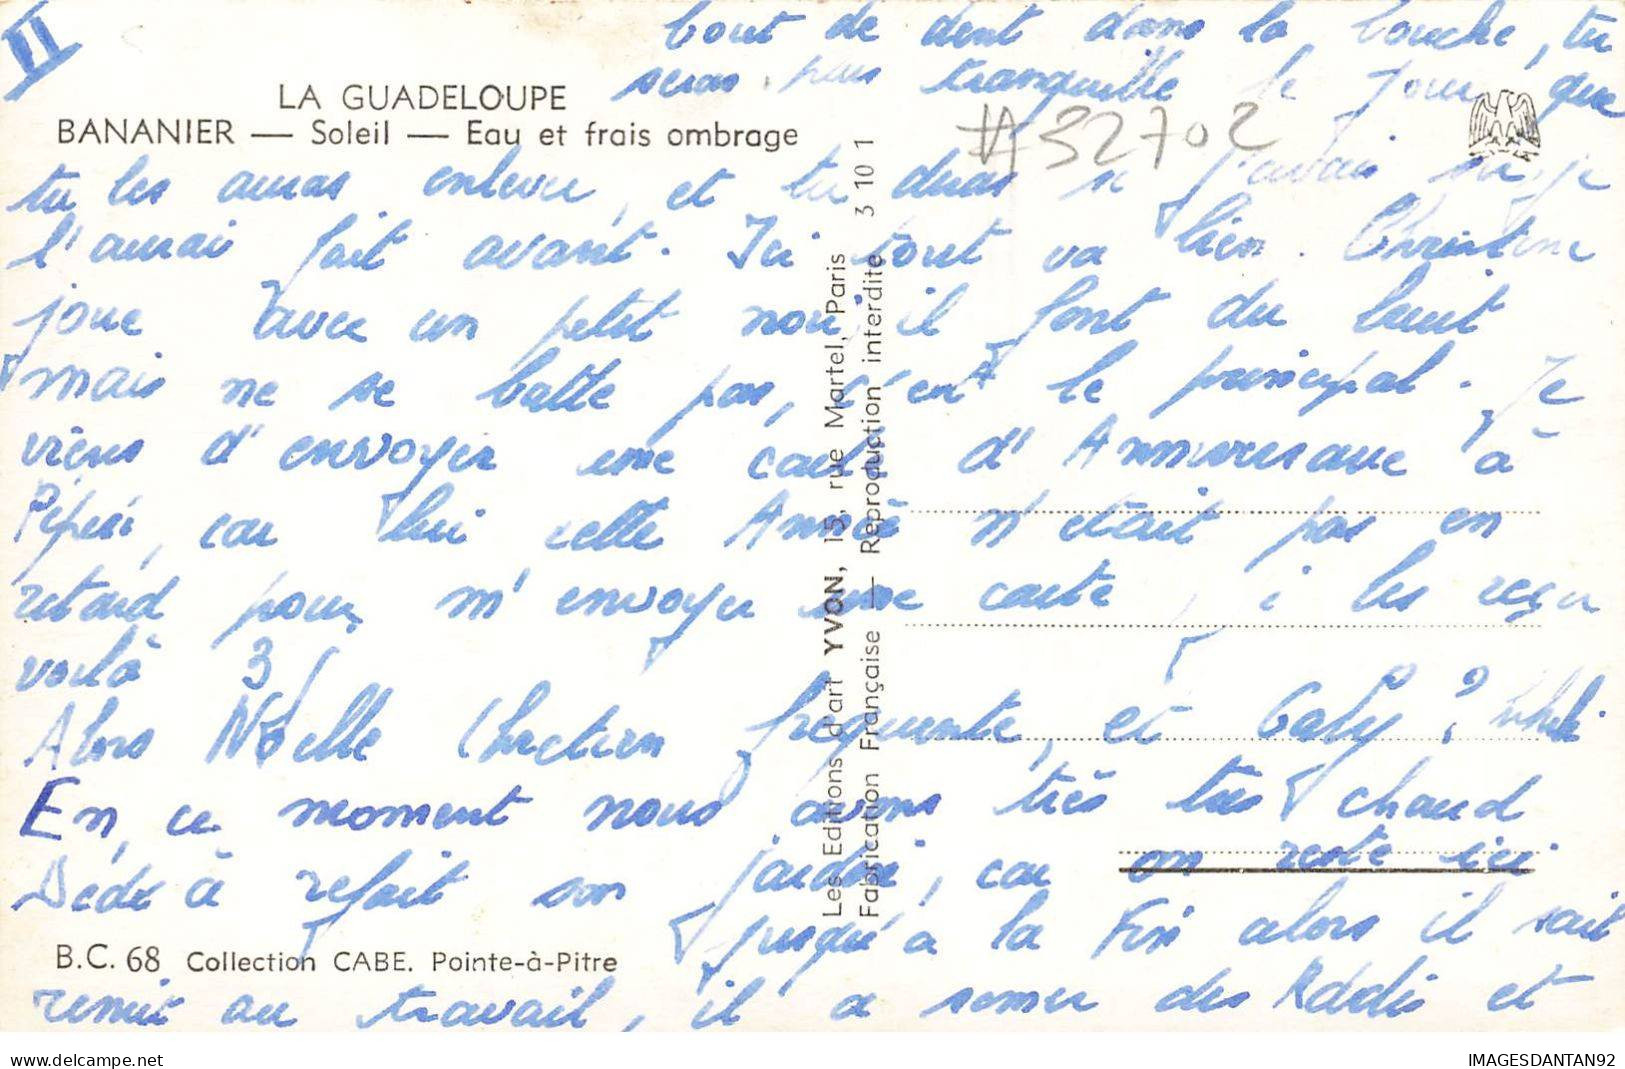 II
bout de dent dans la bouche, tu
seras plus tranquille le jour que
LA GUADELOUPE
BANANIER — Soleil — Eau et frais ombrage
#32702
tu les auras enlever, et tu diras si j'avais su je
l'aurai fait avant. Ici tout va bien. Christine
joue avec un petit noir, il font du bruit
mais ne se batte pas, c'est le principal. Je
viens d'envoyer une carte d'Anniversaire à
Pépéri, car lui cette Année n'était pas en
retard pour m'envoyer une carte, j les reçu
voilà 3
Alors Noëlle Chretien fréquente, et Gaby?
En ce moment nous avons très très chaud
Dédé à refait son jardin, car on reste ici
jusqu'a la Fin alors il sait
remit au travail, il a semer des Radis et
B.C. 68 Collection CABE. Pointe-à-Pitre
Les Editions d'art YVON, 15, rue Martel, Paris
Fabrication Française — Reproduction interdite 3 10 1
www.delcampe.net
IMAGESDANTAN92